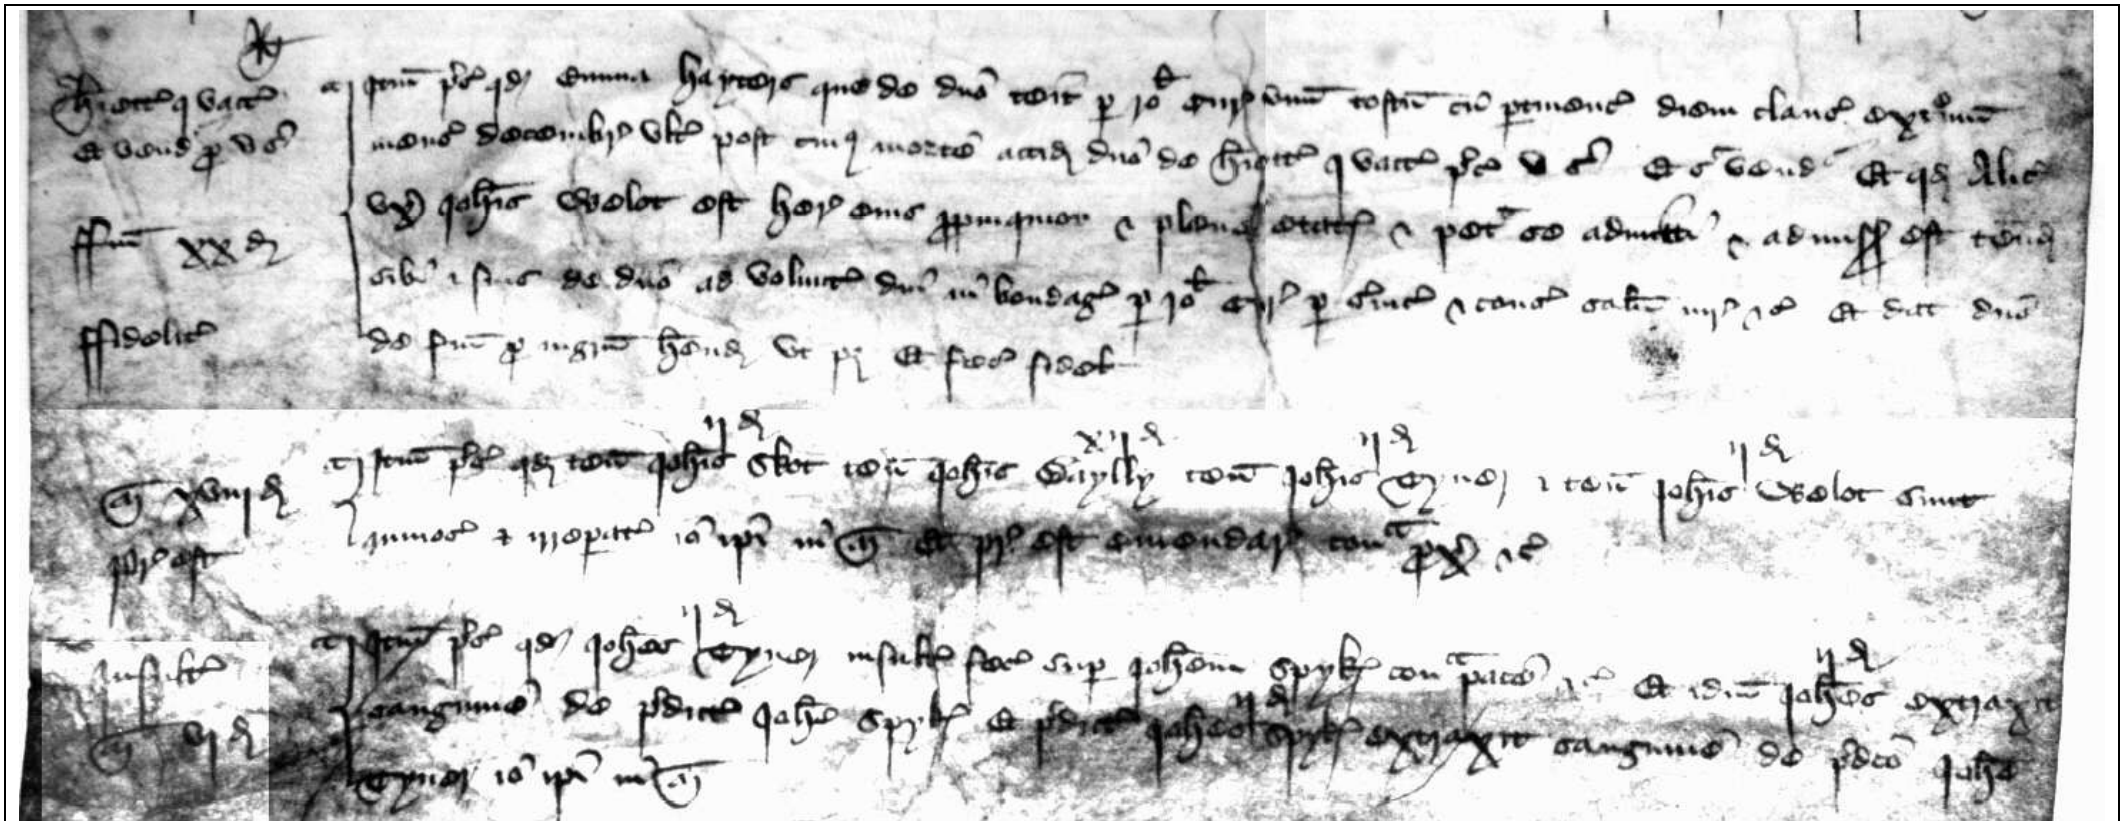 Heriett' j vacc'
et vend' p' v s'
Itm p's' qd Emma Hayters que de dno tenet p rot' cur' unu toftu cu ptinenc' diem claus' extremu
mens' Decembr' ult' post cuius morte accid' dno de heriett' j vacc' p'c' v s' Et s' vend' Et qd Alic'
ffin xx d
ux' Johis Welot est her' eius propinquior & plene etatis & pet' se admitti & admiss' est tend'
sibi & suis de dno ad volunt' dni in bondag' p rot' cur' p s'vic' & cons' salu iur' &c' Et dat dno
ffidelit'
de fine p ingressu hend' ut p' Et fec' fidel'
m'ia xviij d
p'c' est
Itm p's' qd ten Johis Skot ij d ten Johis Baylly xij d ten Johis Tyner ij d & ten Johis Welot ij d sunt
ruinos' & irreparat' io ipi in m'ia Et p'c' est emendar' contra prox' &c'
Insult'
m'ia vj d
Itm p's' qd Johes Tyner ij d insult' fec' sup Johem Spyk' contra pacem &c' Et idem Johes ij d extraxit
sanguine de p'dict' Johe Spyk' Et p'dict' Johes Spyk' ij d extraxit sanguine de p'dco Johe
Tyner io ipi in m'ia